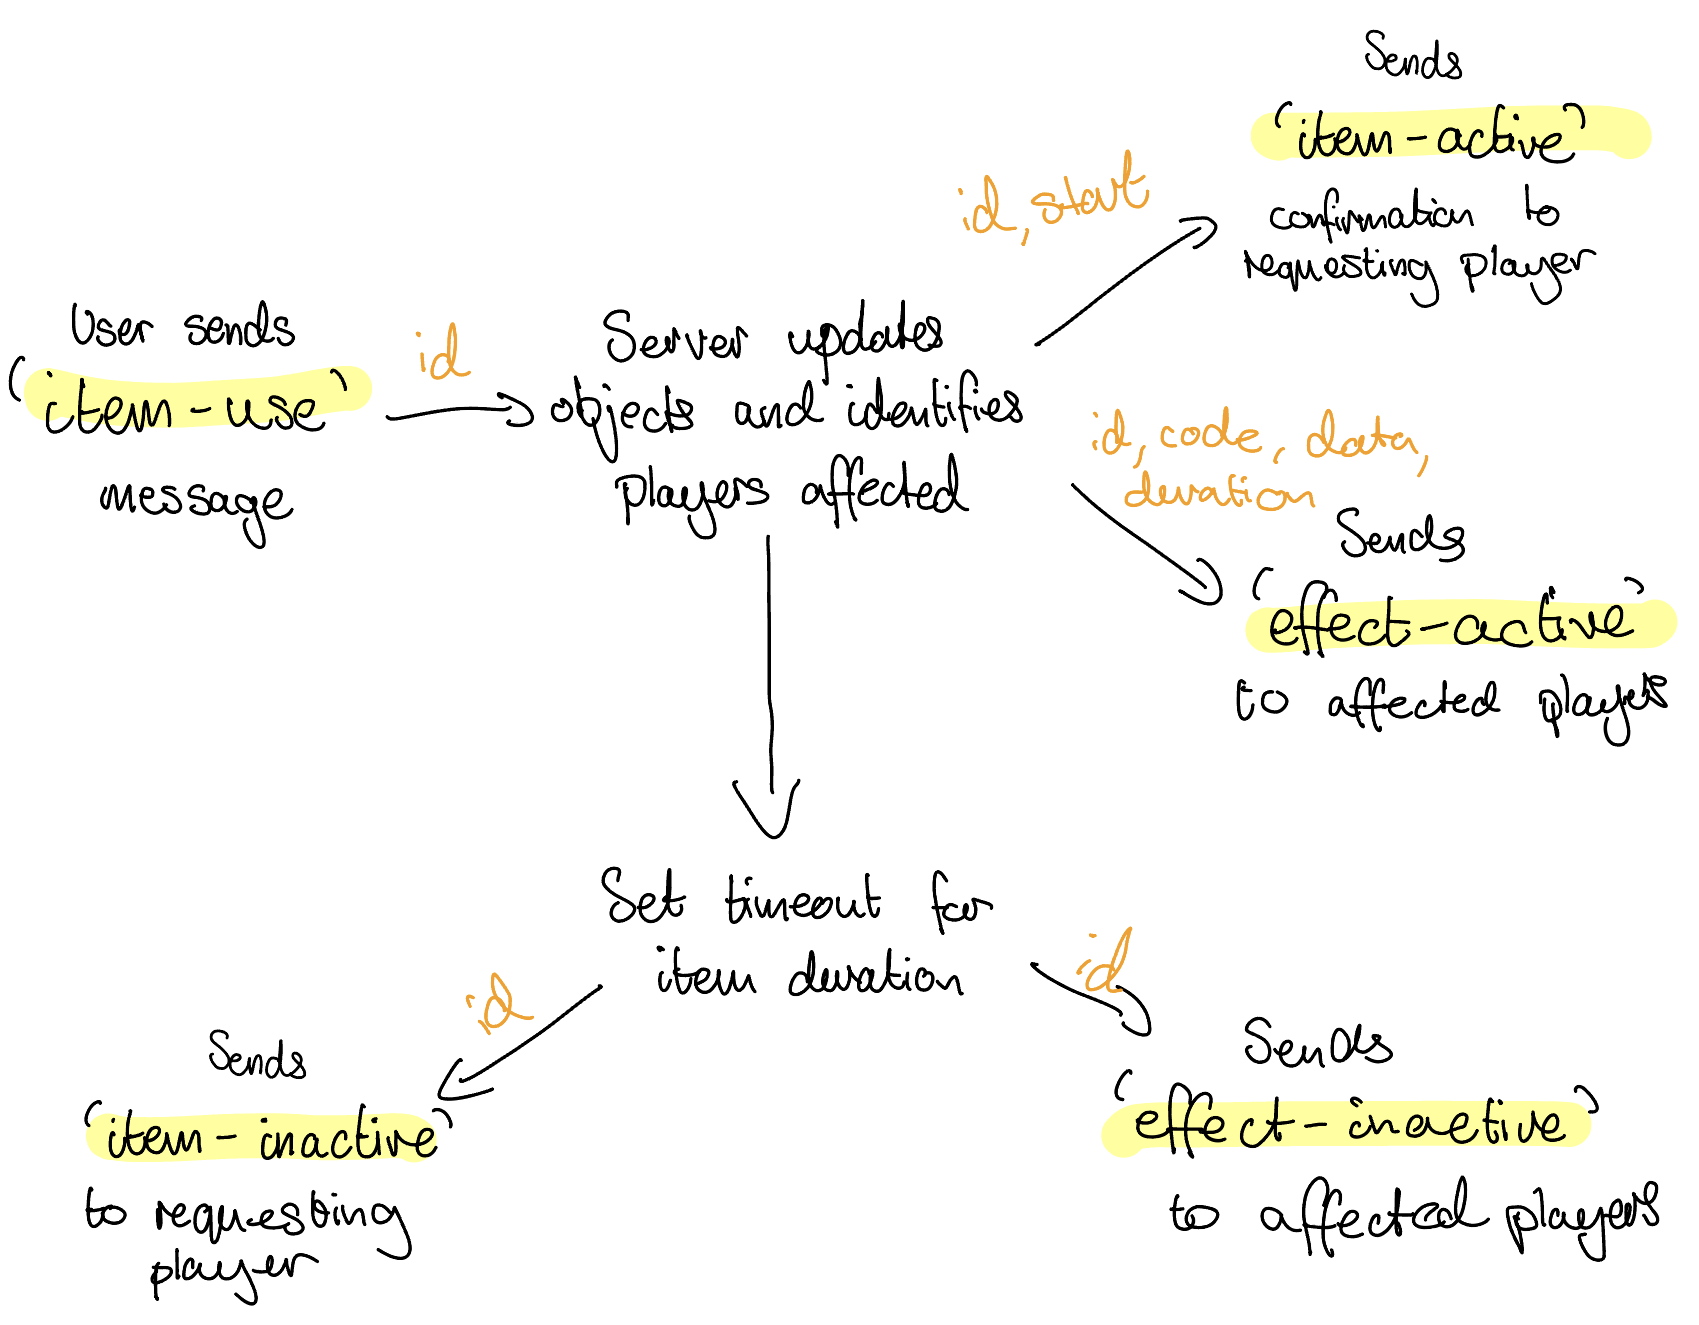 User sends
'item-use'
message
id
Server updates
objects and identifies
players affected
id, start
Sends
'item-active'
confirmation to
requesting player
id, code, data,
duration
Sends
'effect-active'
to affected players
Set timeout for
item duration
id
Sends
'item-inactive'
to requesting
player
id
Sends
'effect-inactive'
to affected players